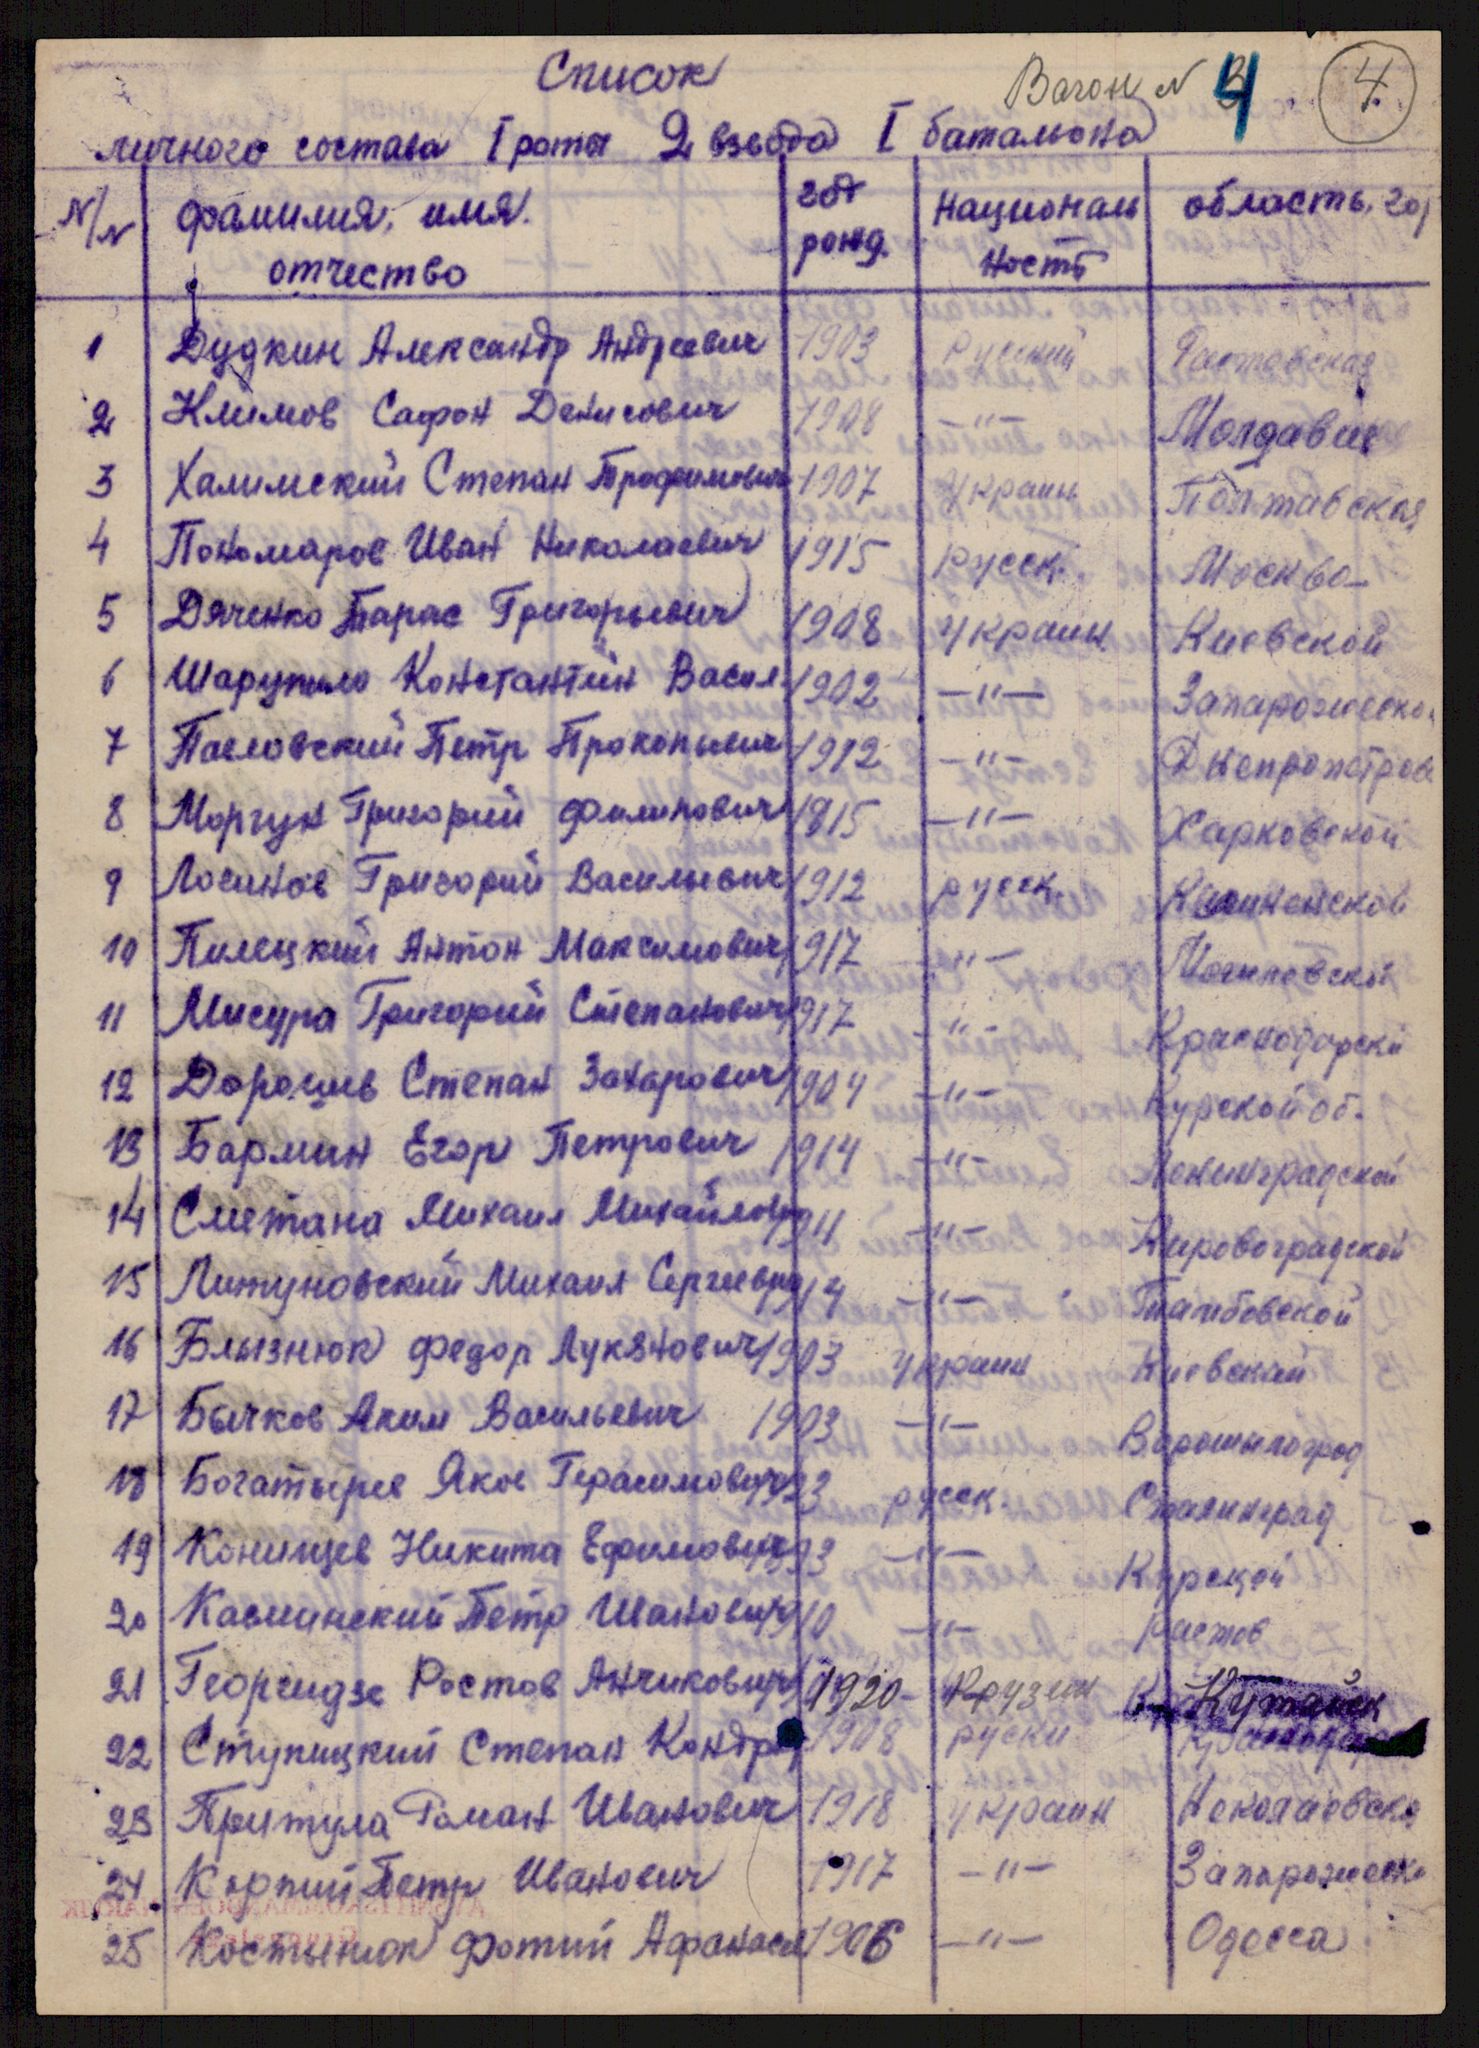 Список
Вагон N 4 4.
личного состава I роты 2 взвода I батальона
N/N фамилия, имя. отчество год рожд. Националь ность область, гор
1 Дудкин Александр Андреевич 1903 Русский Растовская
2 Климов Сафон Денисович 1908 —"— Молдавие
3 Халимский Степан Трофимович 1907 Украин Полтавская
4 Пономаров Иван Николаевич 1915 русск. Москва
5 Дяченко Тарас Григорьевич 1908 Украин Киевской
6 Шарупило Константин Васил. 1902 —"— Запарожеско
7 Павловский Петр Прокопьевич 1912 —"— Днепропетров
8 Моргун Григорий Филипович 1915 —"— Харковской
9 Лосинов Григорий Васильевич 1912 русск.
10 Пилецкий Антон Максимович 1917 —"— Могилевской
11 Мисура Григорий Степанович 1917 —"— Краснодарски
12 Степан Захарович 1904 —"— Курской об.
13 Бармин Егор Петрович 1914 —"— Ленинградской
14 Сметана Михаил Михайлович 1911 —"— Кировоградской
15 Литуновский Михаил Сергеевич 1914 —"— Тамбовской
16 Блызнюк Федор Лукянович 1903 украин Киевский
17 Бычков Аким Васильевич 1903 —"— Ворошилоград
18 Богатырев Яков Герасимович 1923 русск. Сталинград
19 Конищев Никита Ефимович —"— Курской
20 Касминский Петр Иванович 1910 —"— Растов
21 Георгидзе Ростов Анчикович 1920 Грузин Кутайск
22 Ступицкий Степан Кондра 1908 руски
23 Притула Роман Иванович 1918 украин Неколаевско
24 Корпий Петр Иванович 1917 —"— Запорожеско
25 Костынюк Фотий Афанасе 1906 —"— Одесса